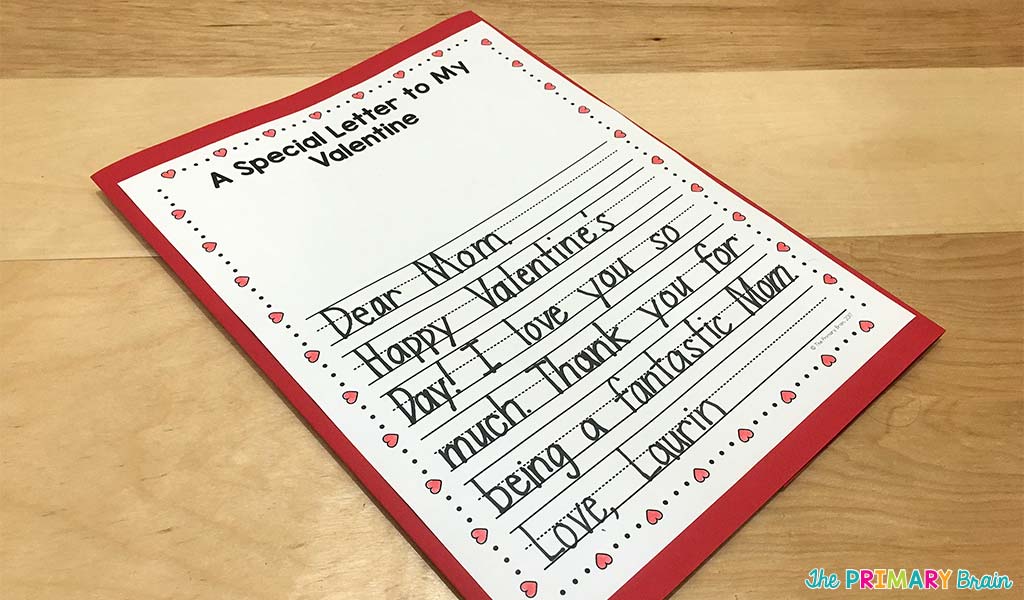 A Special Letter to My
Valentine
Dear Mom,
Happy Valentine's
Day! I love you so
much. Thank you for
being a fantastic Mom.
Love, Laurin
© The Primary Brain, 2017
The PRIMARY Brain